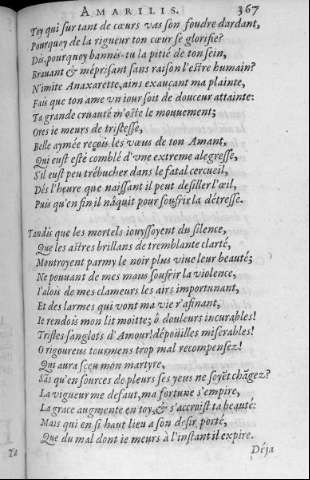 AMARILIS. 367
Toy qui sur tant de cœurs vas son foudre dardant,
Pourquoy de la rigueur ton cœur se glorifie?
Dis, pourquoy bannis-tu la pitié de ton sein,
Brauant & méprisant sans raison l'estre humain?
N'imite Anaxarette, ains exauçant ma plainte,
Fais que ton ame vn iour soit de douceur attainte:
Ta grande cruauté m'oste le mouuement;
Ores ie meurs de tristesse,
Belle aymée reçois les vœus de ton Amant,
Qui eust esté comblé d'vne extreme alegresse,
S'il eust peu trébucher dans le fatal cercueil,
Dés l'heure que naissant il peut desiller l'œil,
Puis qu'en fin il nâquit pour soufrir la détresse.
Tandis que les mortels iouyssoyent du silence,
Que les aitres brillans de tremblante clarté,
Montroyent parmy le noir plus viue leur beauté;
Ne pouuant de mes maus soufrir la violence,
I'alois de mes clameurs les airs importunant,
Et des larmes qui vont ma vie r'afinant,
Ie rendois mon lit moitte; ô douleurs incurables!
Tristes sanglots d'Amour! dépoüilles miserables!
O rigoureus tourmens trop mal recompensez!
Qui aura sceu mon martyre,
Sãs qu'en sources de pleurs ses yeus ne soyẽt chãgez?
La vigueur me defaut, ma fortune s'empire,
La grace augmente en toy, & s'accroist ta beauté:
Mais qui en si haut lieu a son desir porté,
Que du mal dont ie meurs à l'instant il expire.
Déja